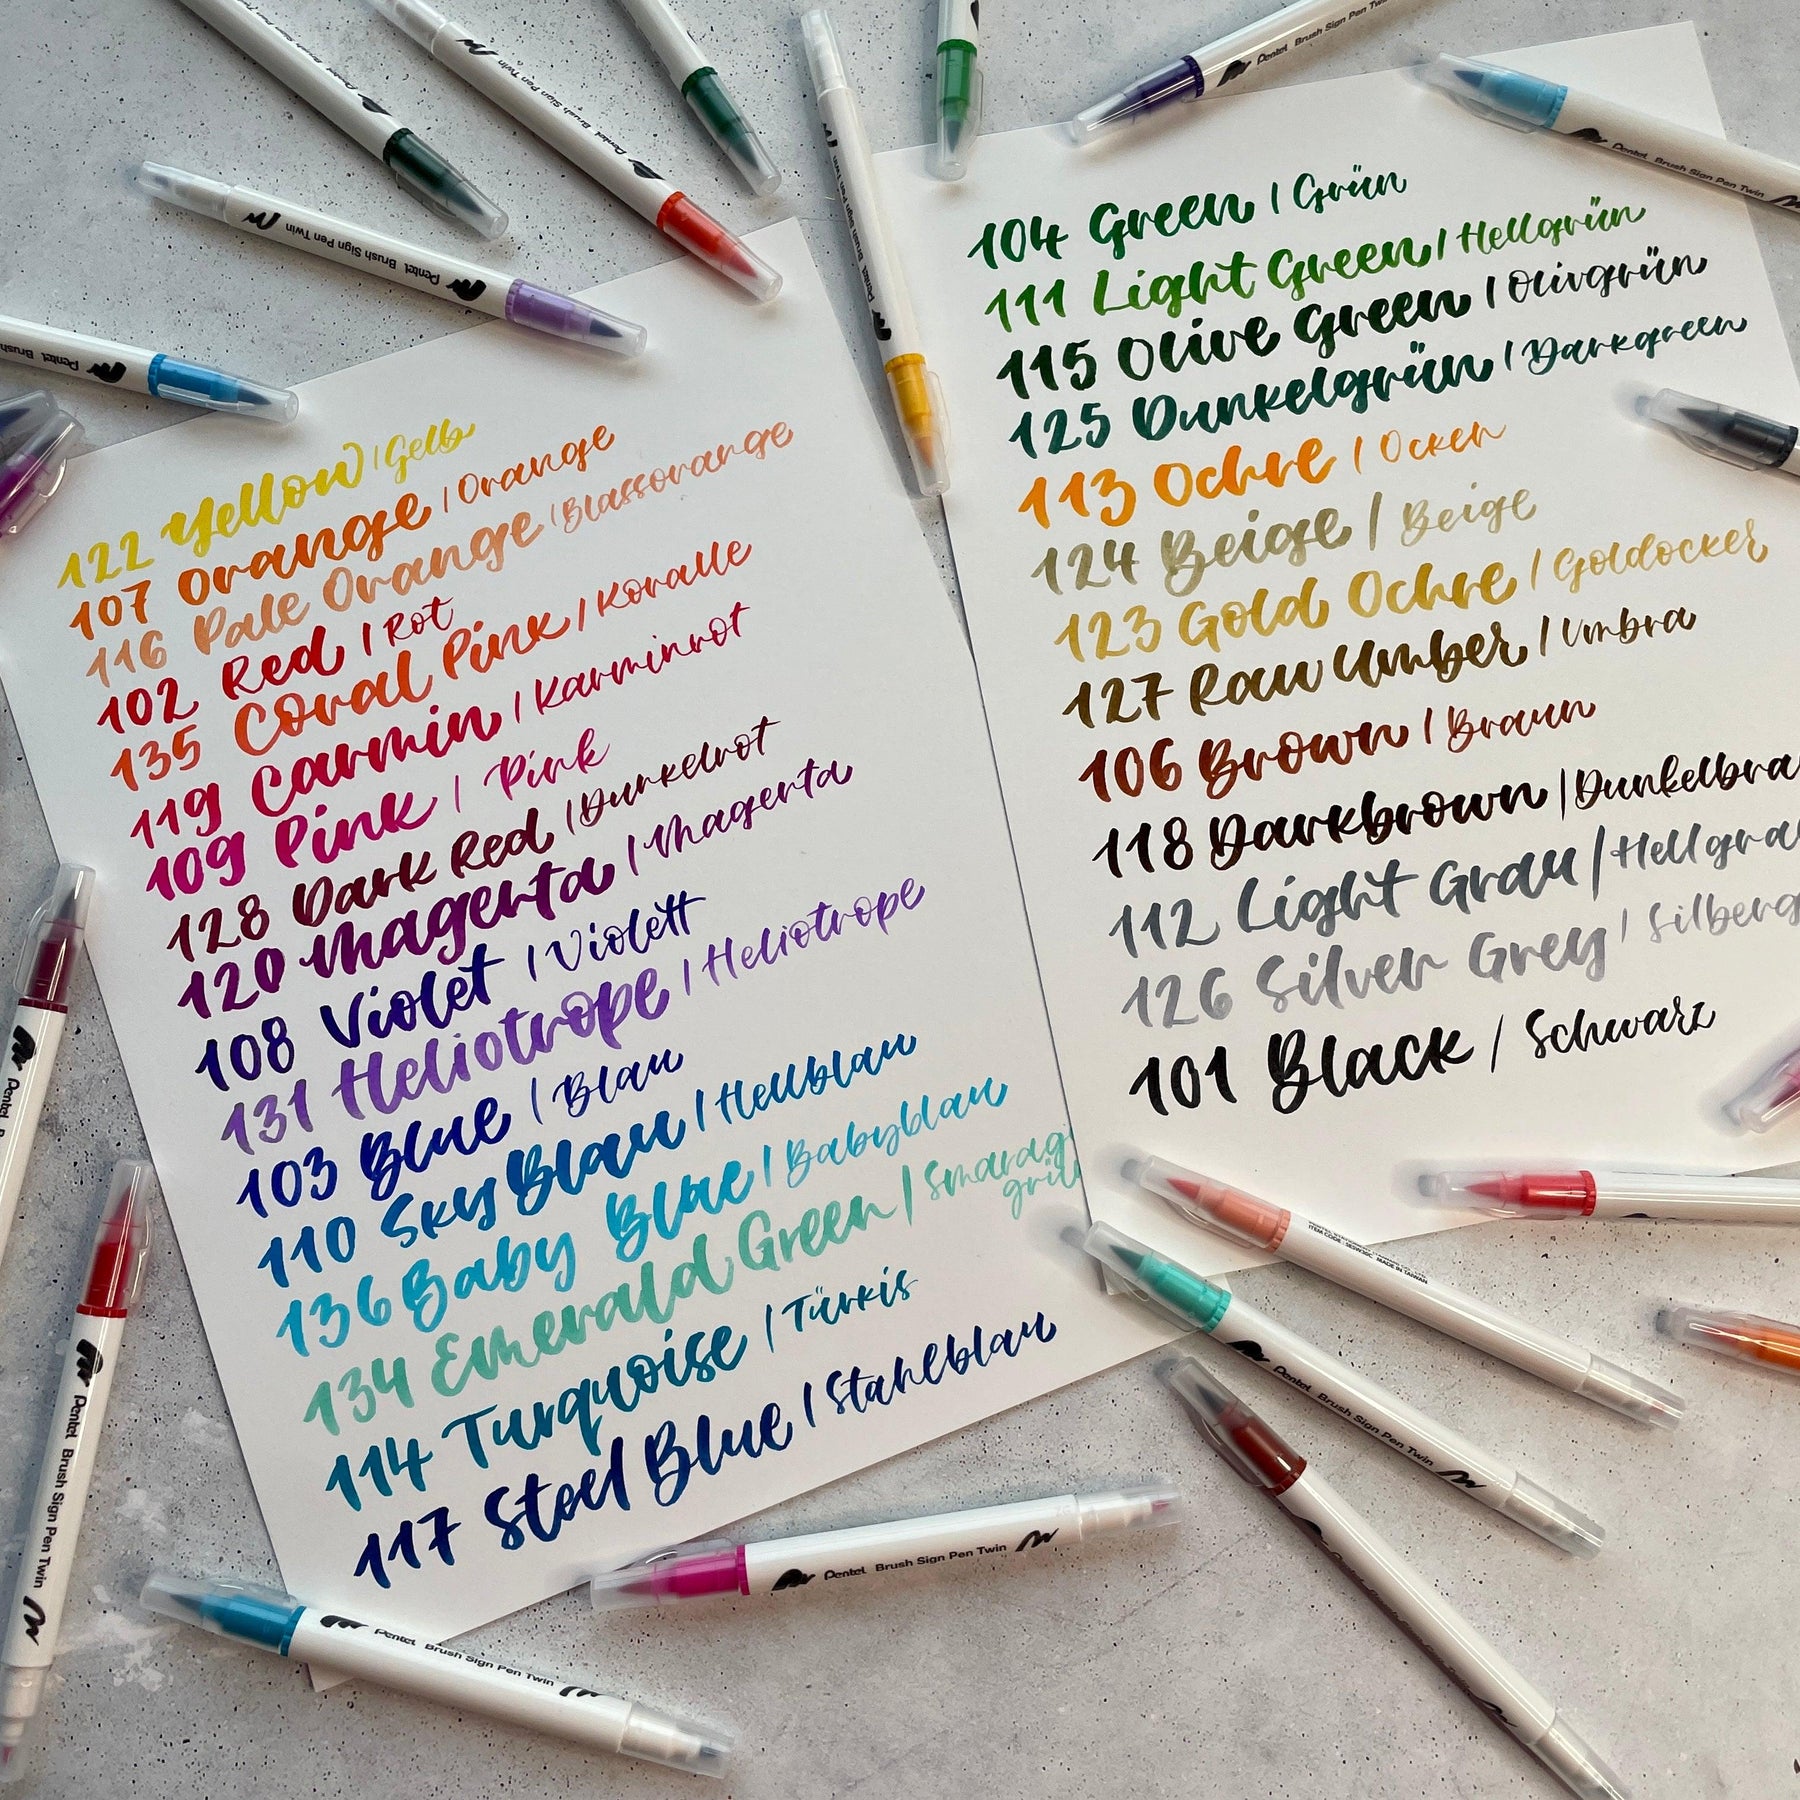 122 Yellow | Gelb
107 Orange | Orange
116 Pale Orange | Blassorange
102 Red | Rot
135 Coral Pink | Koralle
119 Carmin | Karminrot
109 Pink | Pink
128 Dark Red | Dunkelrot
120 Magenta | Magenta
108 Violet | Violett
131 Heliotrope | Heliotrope
103 Blue | Blau
110 Sky Blau | Hellblau
136 Baby Blue | Babyblau
134 Emerald Green | Smaragd
grün
114 Turquoise | Türkis
117 Steel Blue | Stahlblau
104 Green | Grün
111 Light Green | Hellgrün
115 Olive Green | Olivgrün
125 Dunkelgrün | Darkgreen
113 Ochre | Ocker
124 Beige | Beige
123 Gold Ochre | Goldocker
127 Raw Umber | Umbra
106 Brown | Braun
118 Darkbrown | Dunkelbra
112 Light Grau / Hellgra
126 Silver Grey | Silberg
101 Black / Schwarz
Pentel Brush Sign Pen Twin
Pentel Brush Sign Pen Twin
Pentel Brush Sign Pen Twin
Pentel Brush Sign Pen Twin
Pentel Brush
Pentel Brush Sign Pen Twin
Pentel Brush Sign Pen Twin
Pentel
Pentel Brush Sign Pen Twin
Pentel Brush Sign Pen Twin
Pentel Brush Sign Pen Twin
Pentel Brush Sign Pen Twin
MADE IN TAIWAN